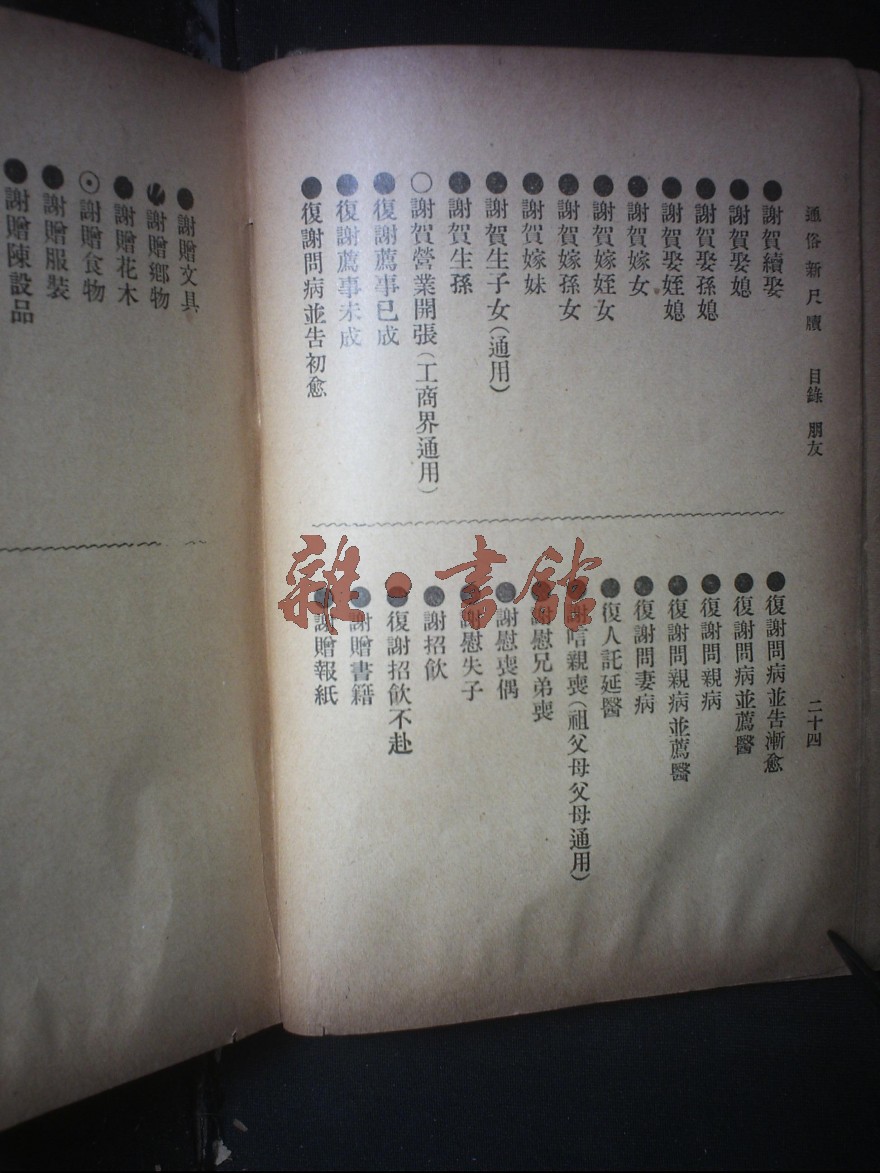 通俗新尺牘　目錄　朋友　二十四
●謝賀續娶
●謝賀娶媳
●謝賀娶孫媳
●謝賀娶姪媳
●謝賀嫁女
●謝賀嫁姪女
●謝賀嫁孫女
●謝賀嫁妹
●謝賀生子女(通用)
●謝賀生孫
○謝賀營業開張(工商界通用)
●復謝薦事已成
●復謝薦事未成
●復謝問病並告初愈
●復謝問病並告漸愈
●復謝問病並薦醫
●復謝問親病
●復謝問親病並薦醫
●復謝問妻病
●復人託延醫
●謝唁親喪(祖父母父母通用)
●謝慰兄弟喪
●謝慰喪偶
●謝慰失子
●謝招飲
●復謝招飲不赴
●謝贈書籍
●謝贈報紙
●謝贈文具
●謝贈鄉物
●謝贈花木
⊙謝贈食物
●謝贈服裝
●謝贈陳設品
雜·書館